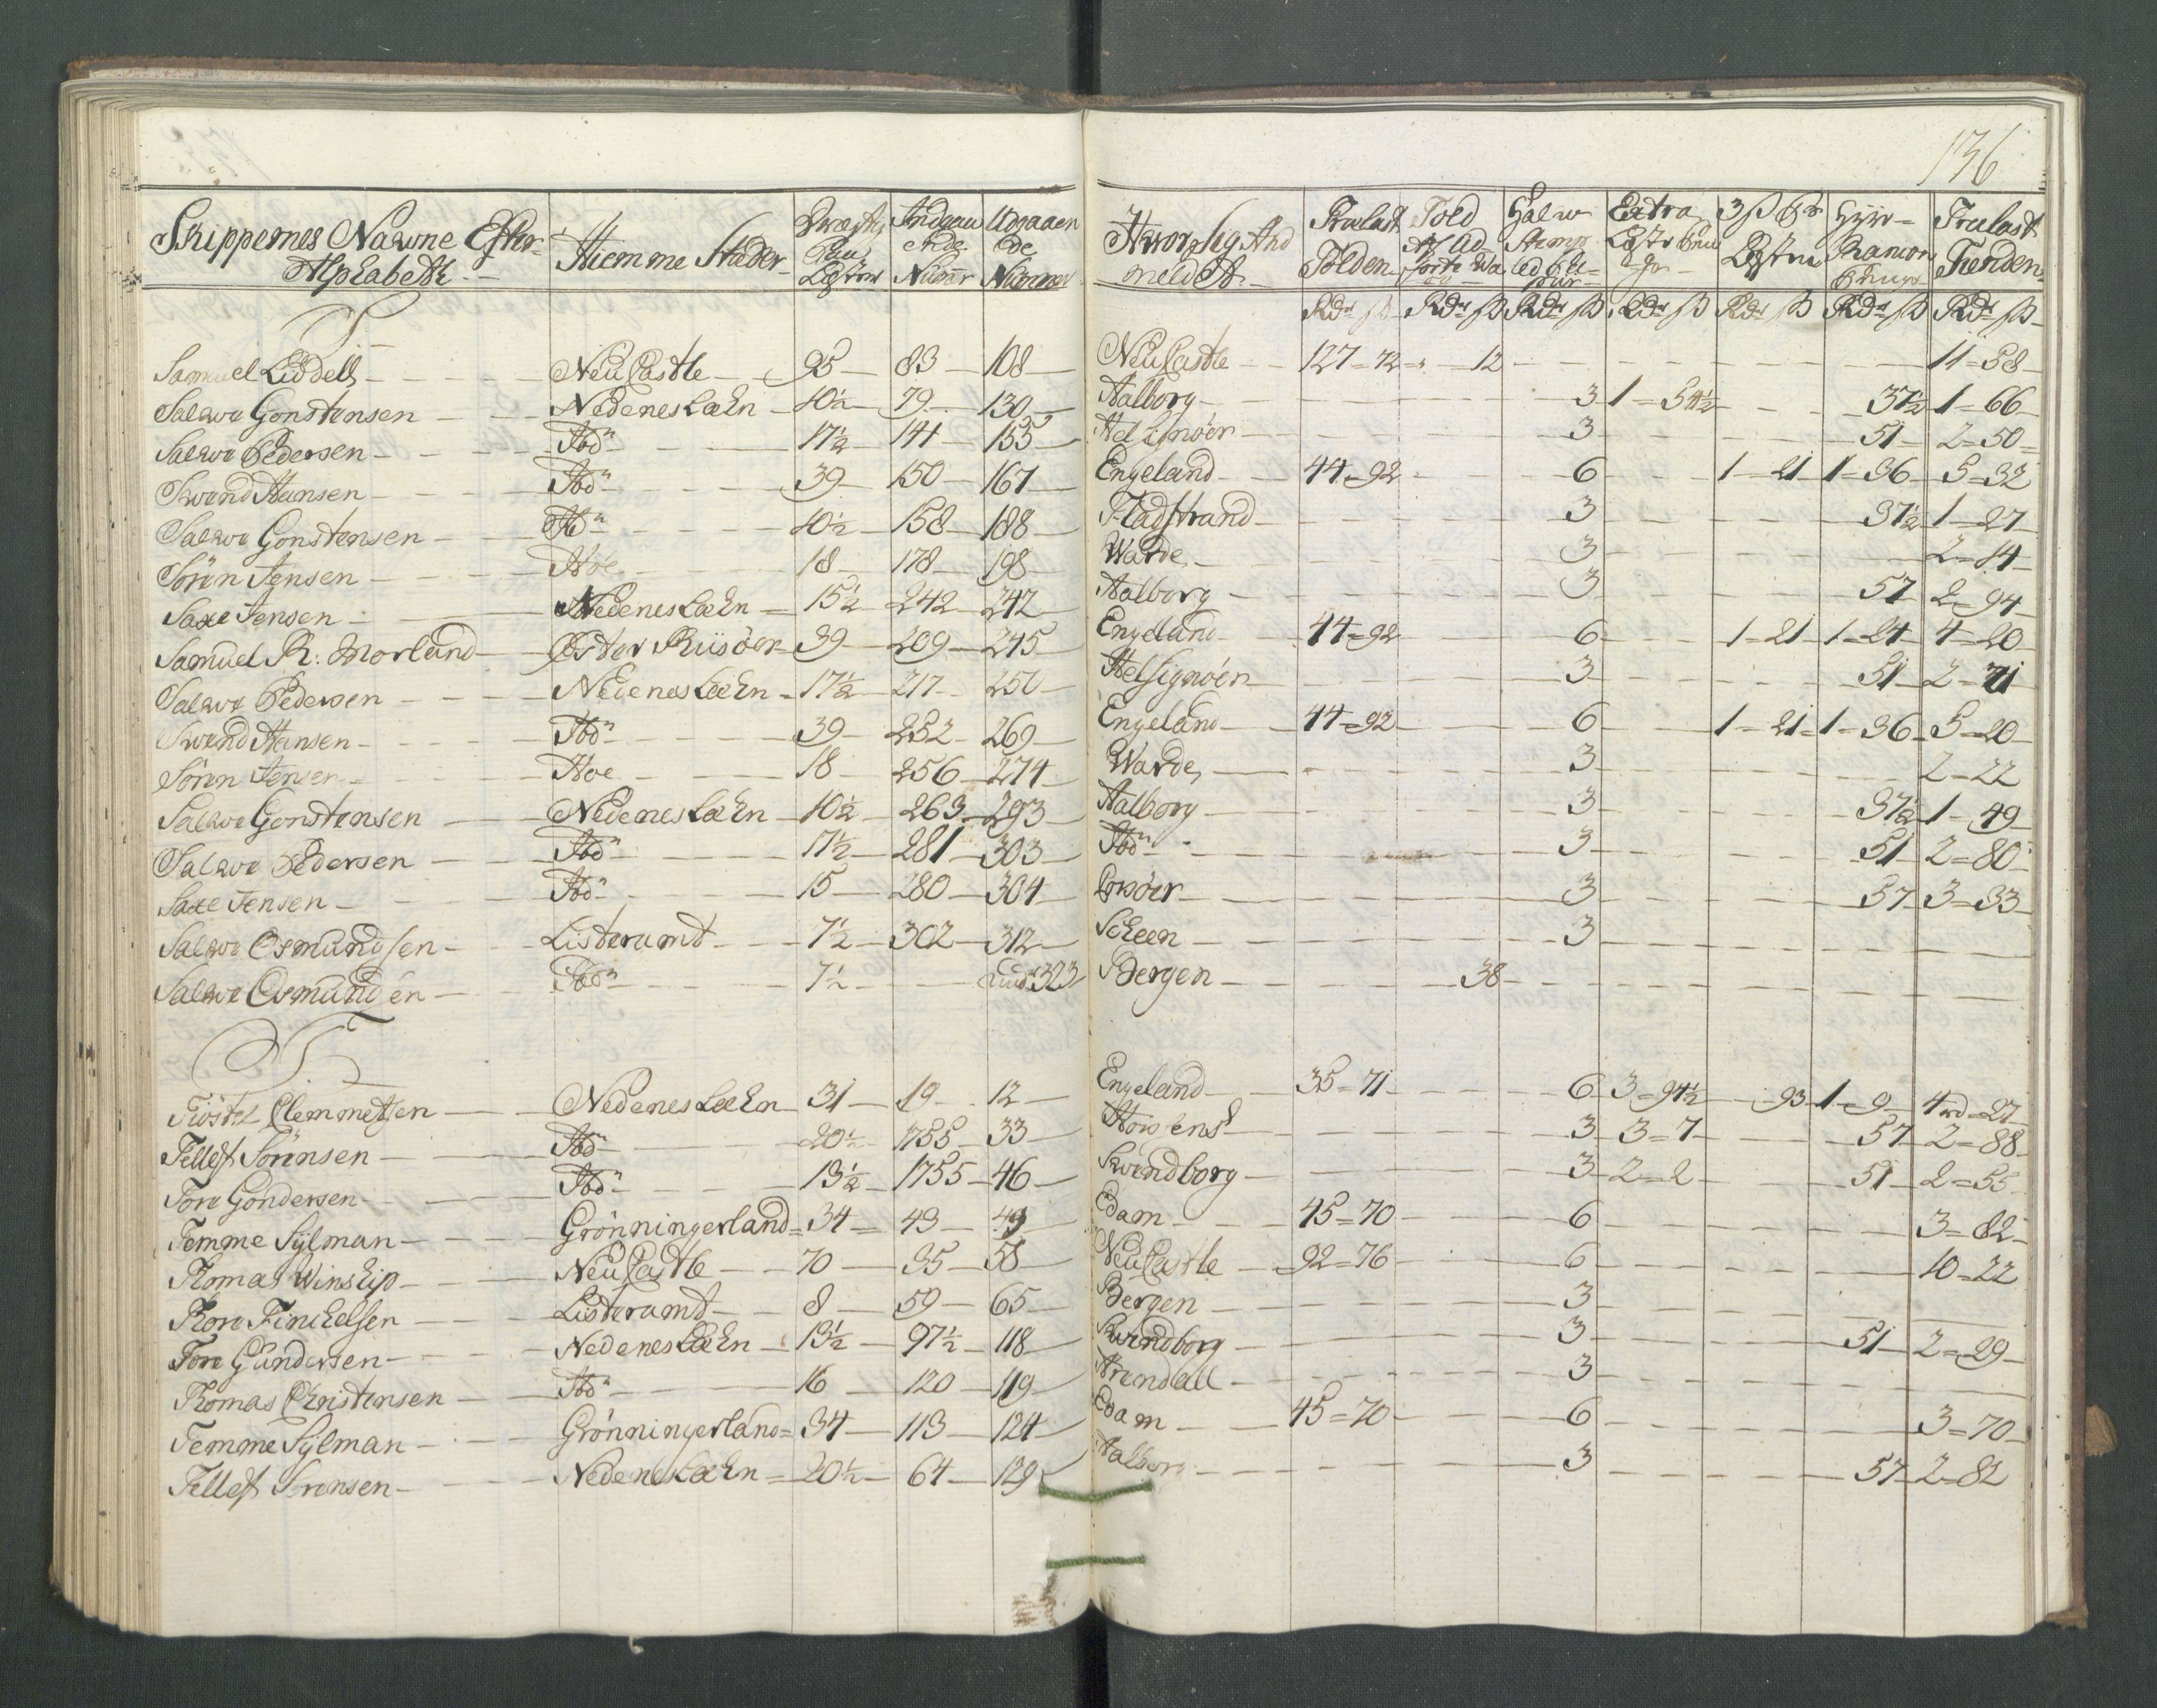 136
Skippernes Nawne Efter Alphabeth | Hiemme Stæder | Drægtig Læster | Indgaaende Numer | Udgaaende Nummer | Hworhen Anmeldt | Trælast Tolden | Told Af Udførte Wa | Halw Stemp | Extra | 3 ß Læsten | Hyre | Trælast Tienden
Rdr ß | Rdr ß | Rdr ß | Rdr ß | Rdr ß | Rdr ß | Rdr ß
S
Samuel Liddell | NeuCastle | 95 | 83 | 108 | NeuCastle | 127=72 | 12 | 11=58
Salwe Gonstensen | NedenesLæhn | 10½ | 79 | 130 | Aalborg | 3 | 1=54½ | 37½ | 1=66
Salwe Pedersen | Ibdn | 17½ | 141 | 155 | Helsignöer | 3 | 51 | 2=50
Swend Hansen | Ibdn | 39 | 150 | 167 | Engeland | 44=92 | 6 | 1=21 | 1=36 | 5=32
Salwe Gonstensen | Ibn | 10½ | 158 | 188 | Fladstrand | 3 | 37½ | 1=27
Sören Jensen | Hoe | 18 | 178 | 198 | Warde | 3 | 2=14
Saxe Jensen | NedenesLæhn | 15½ | 242 | 242 | Aalborg | 3 | 57 | 2=94
Samuel R: Morland | Öster Riisöer | 39 | 209 | 245 | Engeland | 44=92 | 6 | 1=21 | 1=24 | 4=20
Salwe Pedersen | NedenesLæhn | 17½ | 217 | 250 | Helsignöer | 3 | 51 | 2=71
Swend Hansen | Ibdn | 39 | 252 | 269 | Engeland | 44=92 | 6 | 1=21 | 1=36 | 5=20
Sören Jensen | Hoe | 18 | 256 | 274 | Warde | 3 | 2=22
Salwe Gonstensen | NedenesLæhn | 10½ | 263 | 293 | Aalborg | 3 | 37½ | 1=49
Salwe Pedersen | Ibdn | 17½ | 281 | 303 | Ibdn | 3 | 51 | 2=80
Saxe Jensen | Ibdn | 15 | 280 | 304 | 3 | 57 | 3=33
Salwe Osmundsen | Listeramt | 7½ | 302 | 312 | Scheen | 3
Salwe Osmundsen | Ibdn | 7½ | 323 | Bergen | 38
T
Clemmetsen | NedenesLæhn | 31 | 19 | 12 | Engeland | 35=71 | 6 | 3=94½ | 93 | 1=9 | 4rd=27
Tellefs Sörensen | Ibdn | 20½ | 1755 | 33 | Horsens | 3 | 3=7 | 57 | 2=88
Tore Gondersen | Ibdn | 13½ | 1755 | 46 | Swendborg | 3 | 2=2 | 51 | 2=55
Temme Sylman | Grönningerland | 34 | 43 | 49 | Edam | 45=70 | 6 | 3=82
Thomas Winship | NeuCastle | 70 | 35 | 58 | NeuCastle | 92=76 | 6 | 10=22
Thore Finchelsen | Listeramt | 8 | 59 | 65 | Bergen | 3
Tore Gundersen | NedenesLæhn | 13½ | 97½ | 118 | Swendborg | 3 | 51 | 2=29
Thomas Christensen | Ibdn | 16 | 120 | 119 | Arendall | 3
Temme Sylman | Grönningerland | 34 | 113 | 124 | Edam | 45=70 | 6 | 3=70
Tellefs Sörensen | NedenesLæhn | 20½ | 64 | 129 | Aalborg | 3 | 57 | 2=82